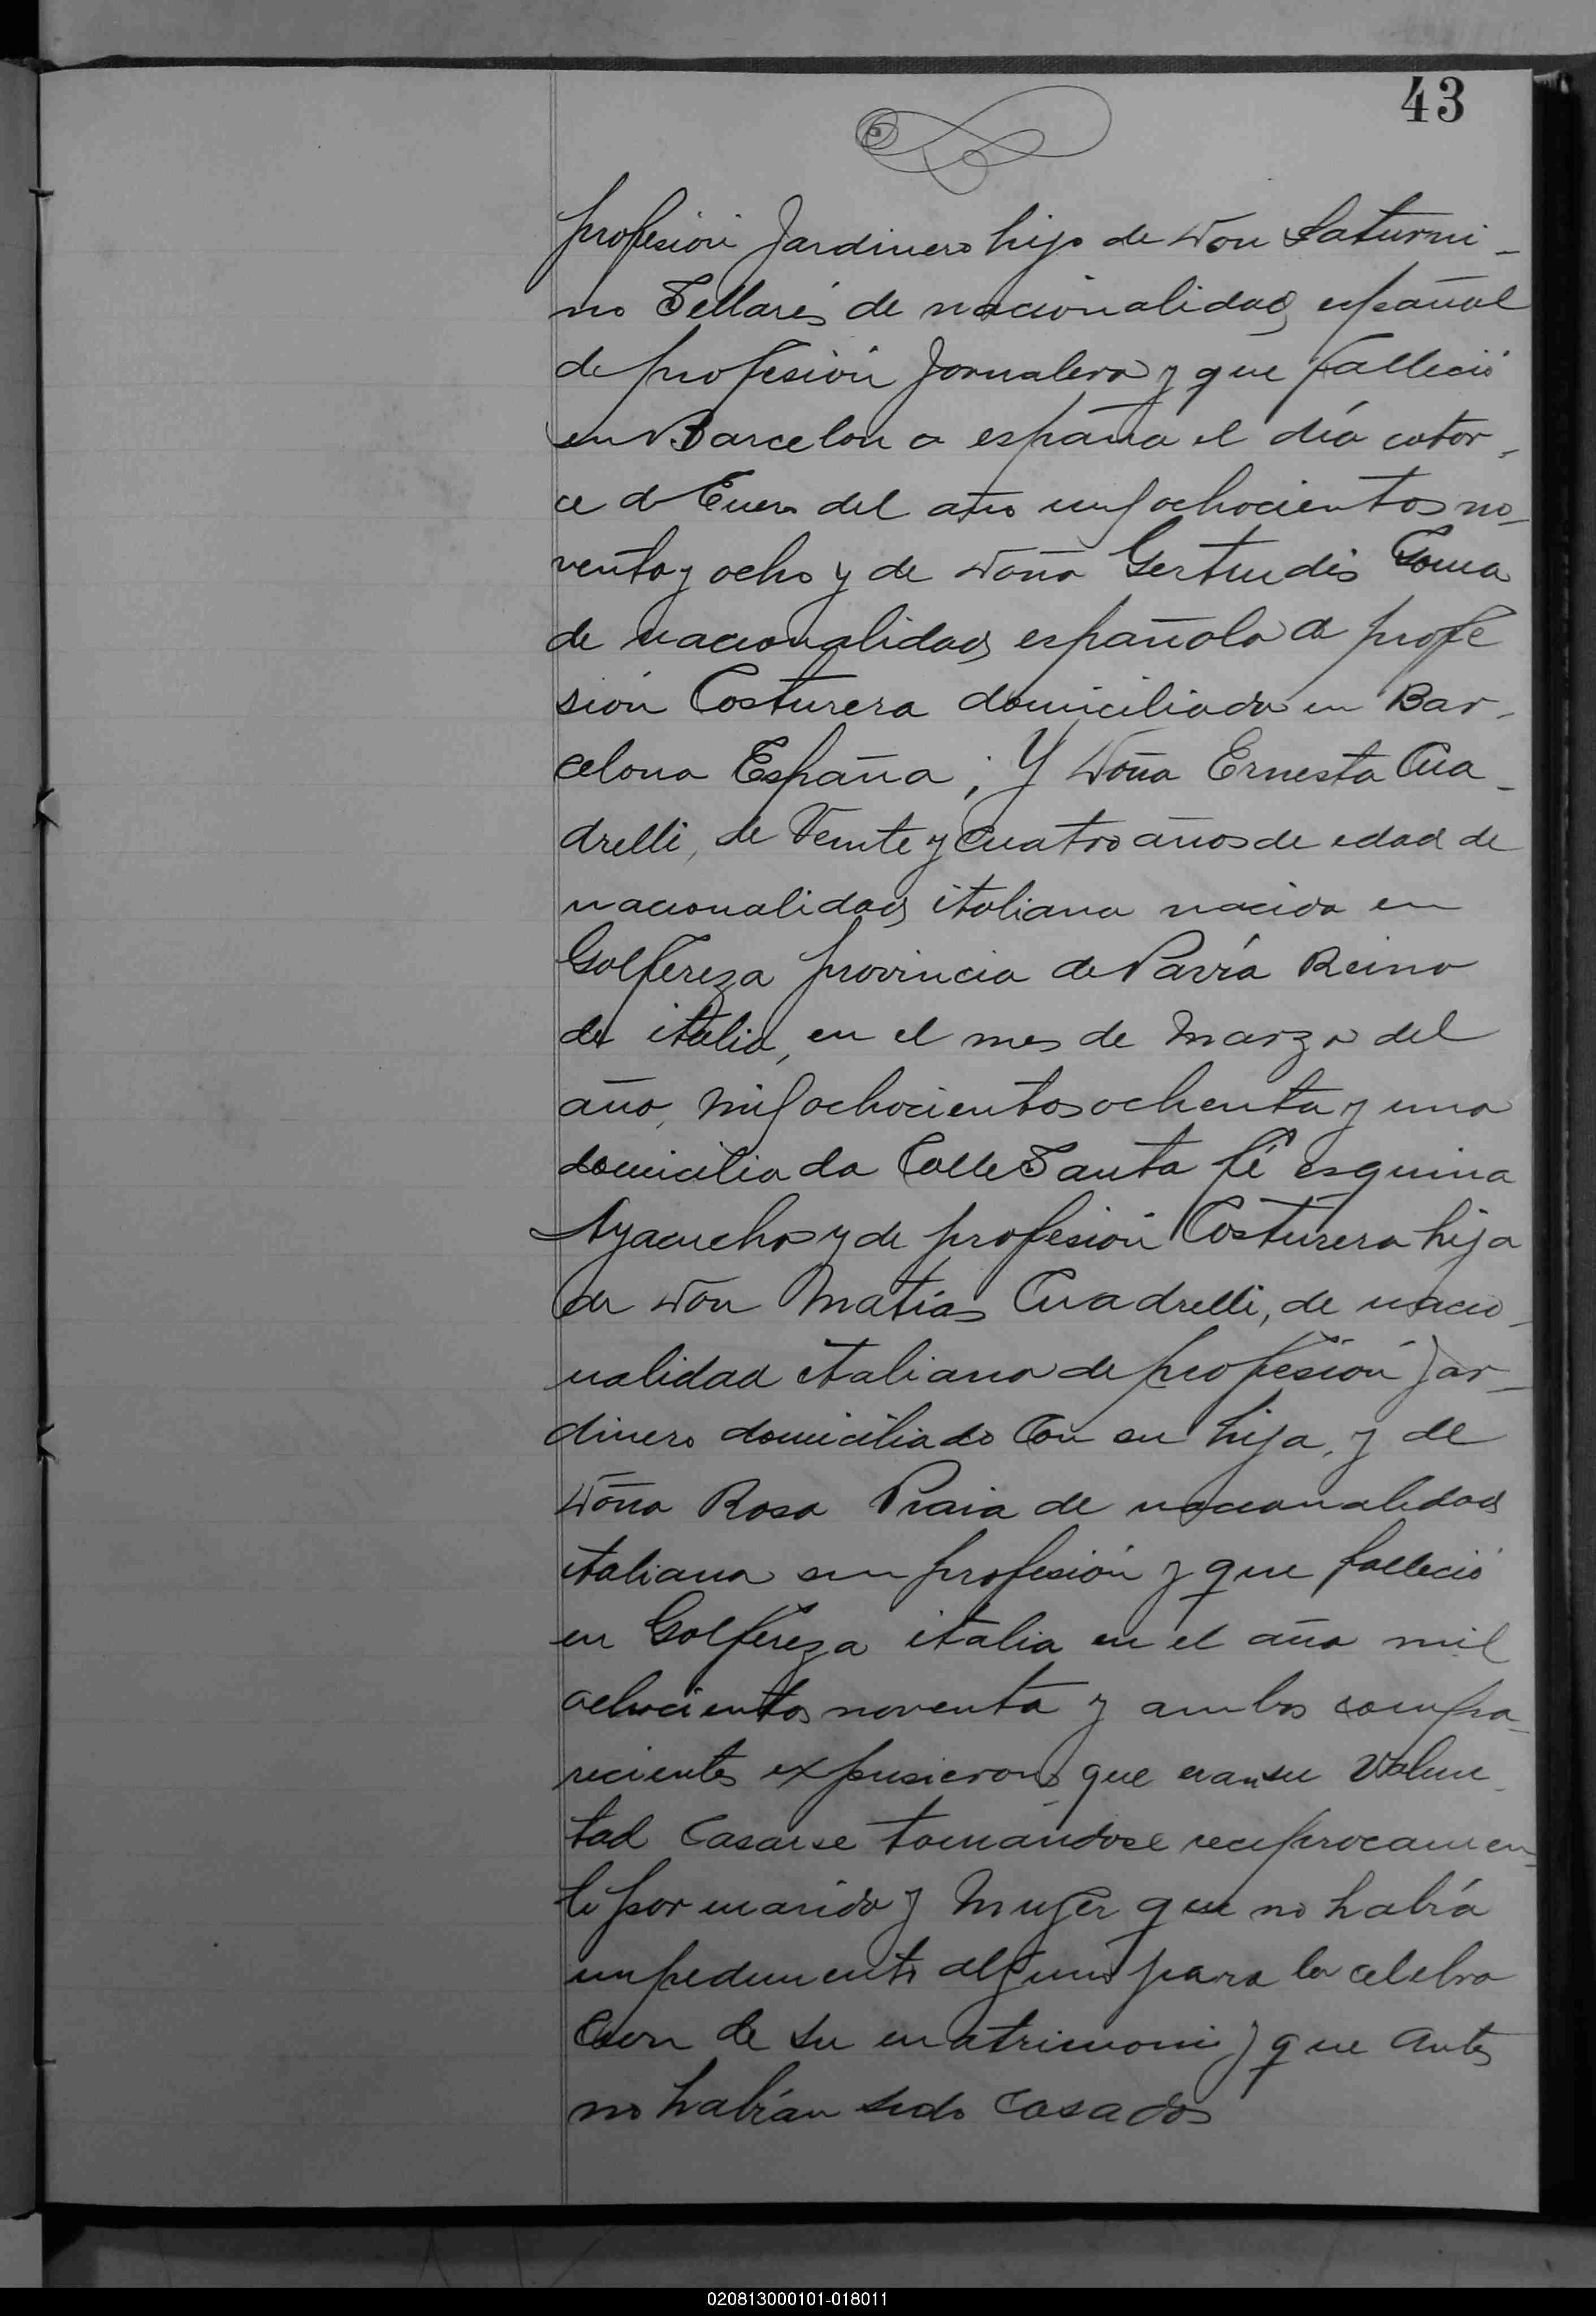 43
profesión Jardinero hijo de Don Saturni-
no Sellarés de nacionalidad español
de profesión Jornalero y que falleció
en Barcelona españa el día cator-
ce de Enero del año mil ochocientos no-
venta y ocho y de Doña Gertrudis Coma
de nacionalidad española de profe
sión Costurera domiciliada en Bar-
celona España; Y Doña Ernesta Cua-
drelli, de Veinte y Cuatro años de edad de
nacionalidad italiana nacida en
Golfereza provincia de Pavía Reino
de italia, en el mes de Marzo del
año, mil ochocientos ochenta y uno
domiciliada Calle Santa fé esquina
Ayacucho y de profesión Costurera hija
de Don Matías Cuadrelli, de nacio-
nalidad italiano de profesión Jar-
dinero domiciliado Con su hija, y de
Doña Rosa Praia de nacionalidad
italiana sin profesión y que falleció
en Golfereza italia en el año mil
ochocientos noventa y ambos compa-
recientes expusieron que era su Volun-
tad Casarse tomandose reciprocamen-
te por marido y Mujer que no había
impedimento alguno para la celebra
cion de su matrimonio y que antes
no habían sido casados
020813000101-018011